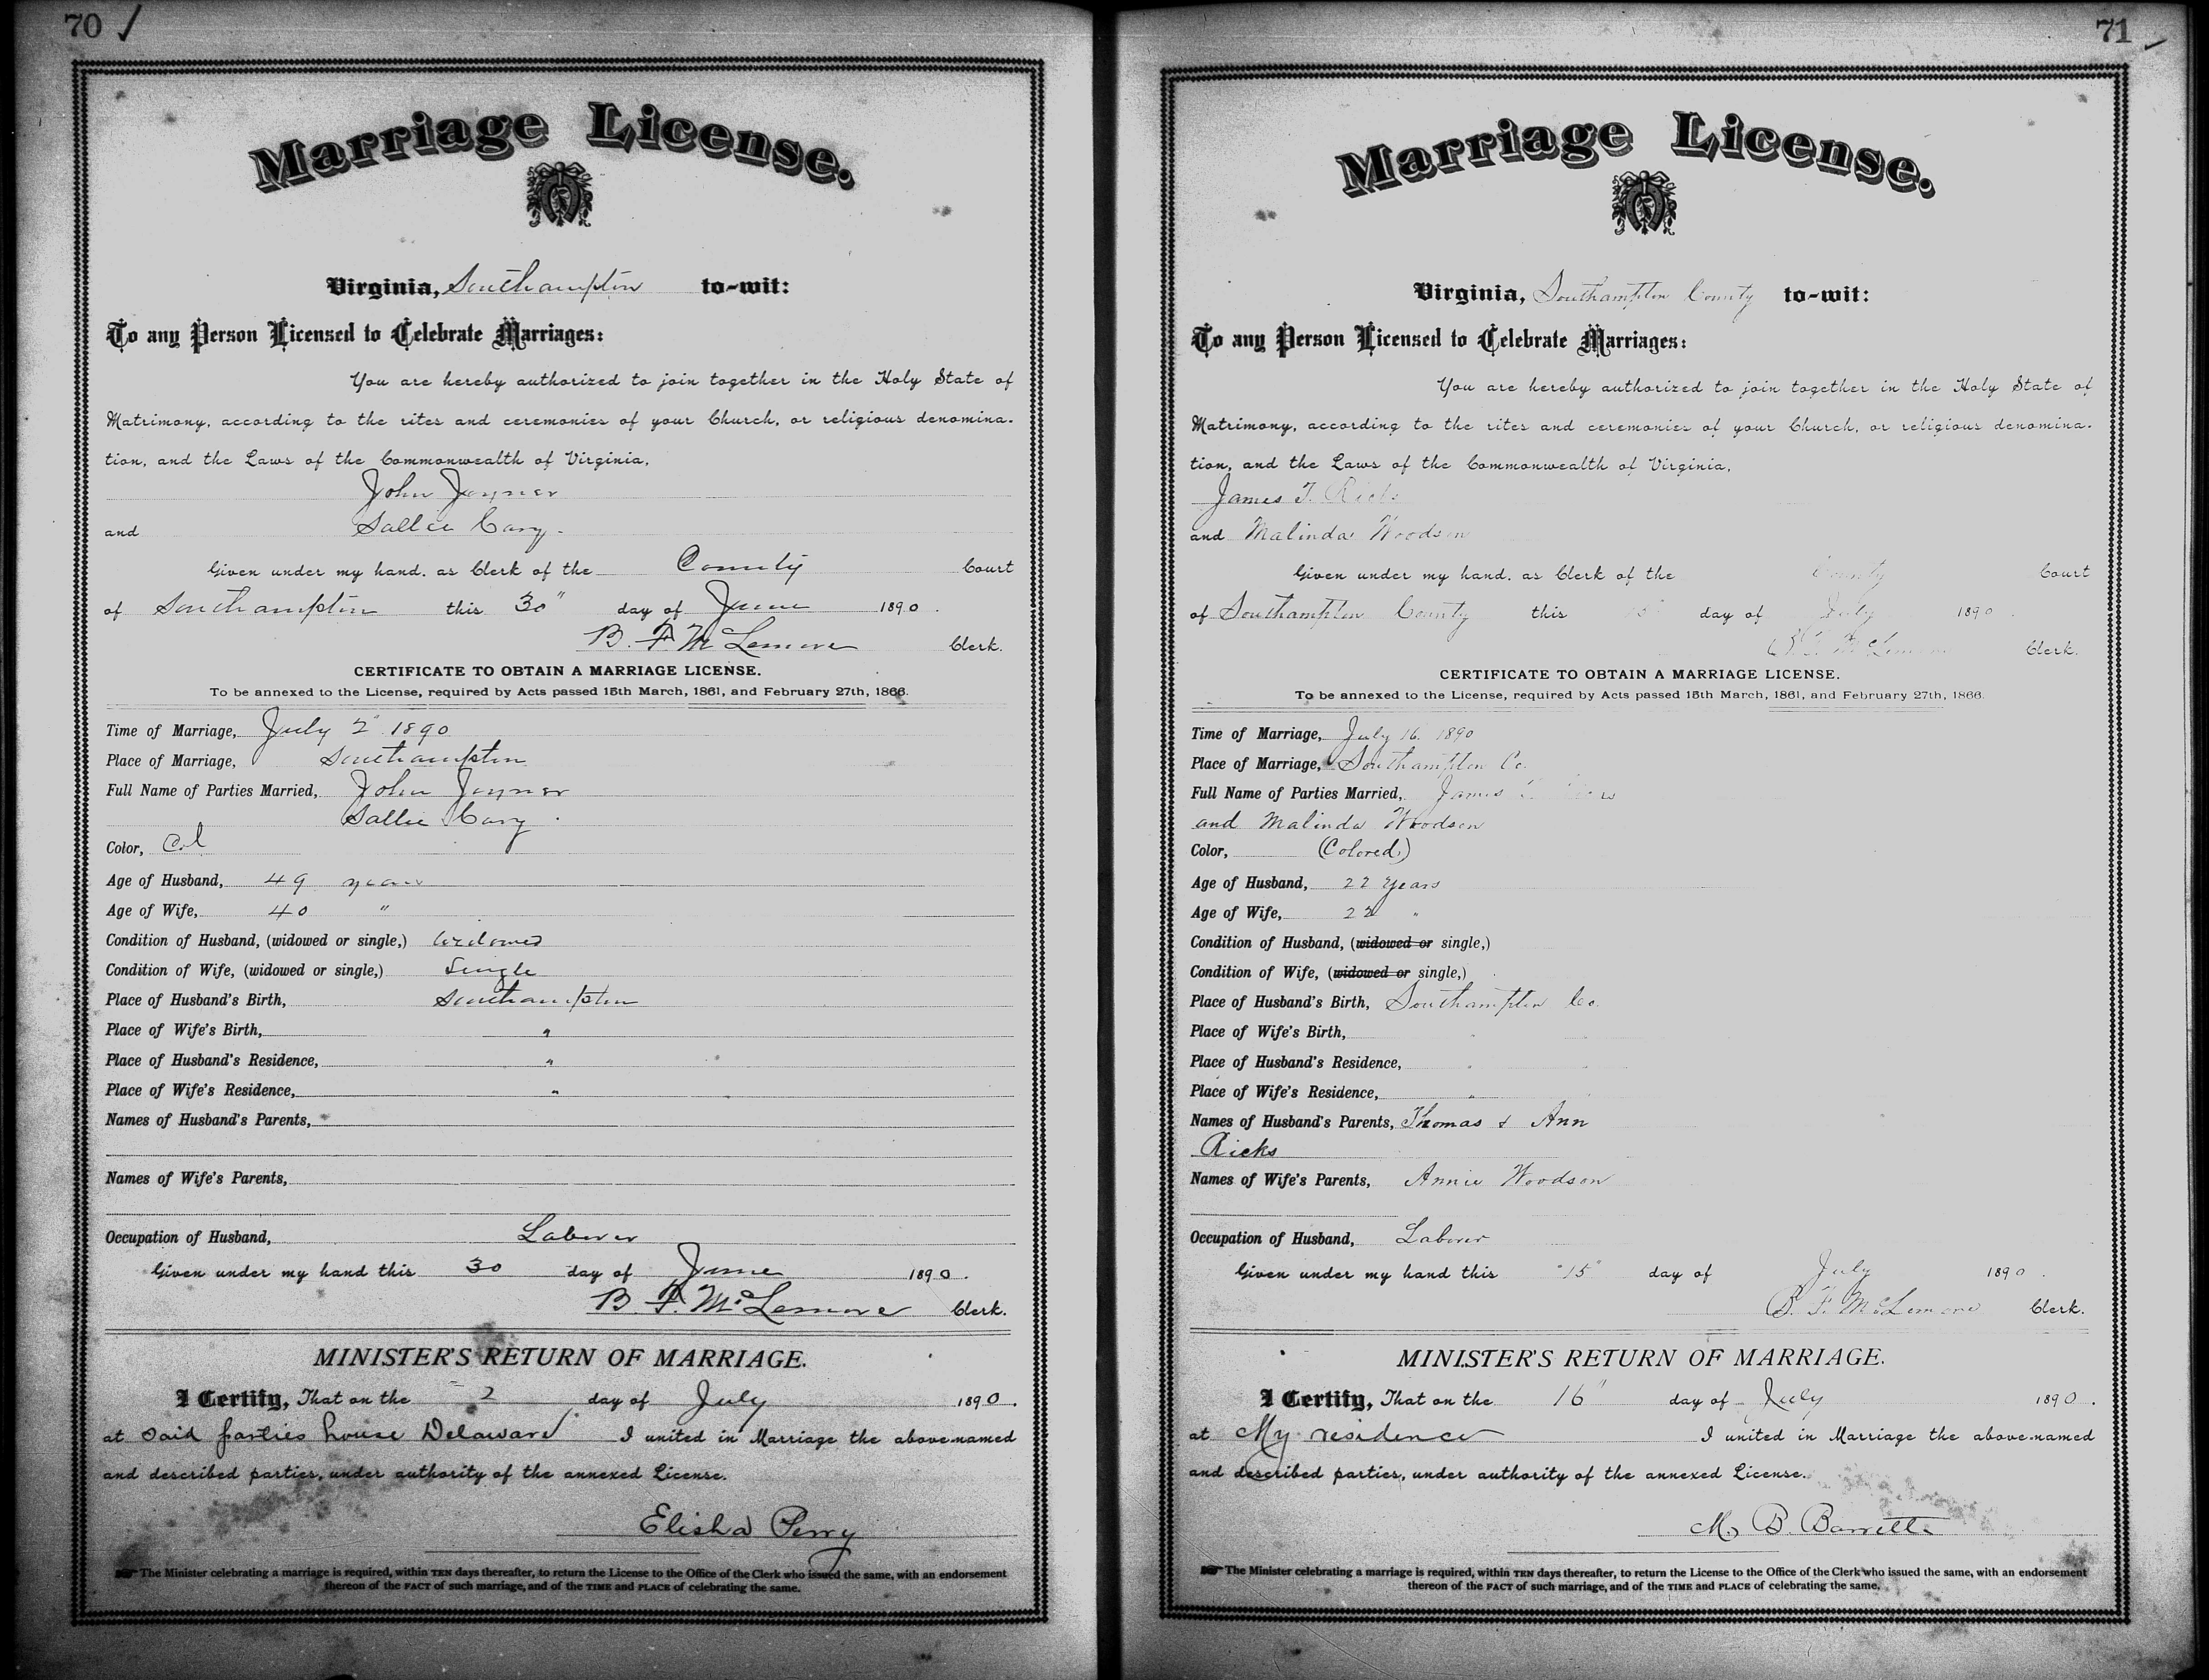 70
Marriage License.
Virginia, Southampton to-wit:
To any Person Licensed to Celebrate Marriages:
You are hereby authorized to join together in the Holy State of
Matrimony, according to the rites and ceremonies of your Church, or religious denomina-
tion, and the Laws of the Commonwealth of Virginia,
John Joyner
and Sallie Cary.
Given under my hand, as Clerk of the County Court
of Southampton this 30" day of June 1890.
B. F. McLemore Clerk.
CERTIFICATE TO OBTAIN A MARRIAGE LICENSE.
To be annexed to the License, required by Acts passed 15th March, 1861, and February 27th, 1866.
Time of Marriage, July 2" 1890
Place of Marriage, Southampton
Full Name of Parties Married, John Joyner
Sallie Cary.
Color, Col
Age of Husband, 49 years
Age of Wife, 40 "
Condition of Husband, (widowed or single,) Widowed
Condition of Wife, (widowed or single,) Single
Place of Husband's Birth, Southampton
Place of Wife's Birth, "
Place of Husband's Residence, "
Place of Wife's Residence, "
Names of Husband's Parents,
Names of Wife's Parents,
Occupation of Husband, Laborer
Given under my hand this 30 day of June 1890.
B. F. McLemore Clerk.
MINISTER'S RETURN OF MARRIAGE.
I Certify, That on the 2 day of July 1890.
at Said parties house Delaware I united in Marriage the above-named
and described parties, under authority of the annexed License.
Elisha Perry
The Minister celebrating a marriage is required, within TEN days thereafter, to return the License to the Office of the Clerk who issued the same, with an endorsement
thereon of the FACT of such marriage, and of the TIME and PLACE of celebrating the same.
71
Marriage License.
Virginia, Southampton County to-wit:
To any Person Licensed to Celebrate Marriages:
You are hereby authorized to join together in the Holy State of
Matrimony, according to the rites and ceremonies of your Church, or religious denomina-
tion, and the Laws of the Commonwealth of Virginia,
James T. Ricks
and Malinda Woodson
Given under my hand, as Clerk of the County Court
of Southampton County this 15" day of July 1890.
B. F. McLemore Clerk.
CERTIFICATE TO OBTAIN A MARRIAGE LICENSE.
To be annexed to the License, required by Acts passed 15th March, 1861, and February 27th, 1866.
Time of Marriage, July 16. 1890
Place of Marriage, Southampton Co.
Full Name of Parties Married, James
and Malinda Woodson
Color, (Colored)
Age of Husband, 22 Years
Age of Wife, 22 "
Condition of Husband, (widowed or single,)
Condition of Wife, (widowed or single,)
Place of Husband's Birth, Southampton Co.
Place of Wife's Birth, "
Place of Husband's Residence, "
Place of Wife's Residence, "
Names of Husband's Parents, Thomas & Ann
Ricks
Names of Wife's Parents, Annie Woodson
Occupation of Husband, Laborer
Given under my hand this "15" day of July 1890.
B. F. McLemore Clerk.
MINISTER'S RETURN OF MARRIAGE.
I Certify, That on the 16" day of July 1890.
at My residence I united in Marriage the above-named
and described parties, under authority of the annexed License.
M. B. Barrett
The Minister celebrating a marriage is required, within TEN days thereafter, to return the License to the Office of the Clerk who issued the same, with an endorsement
thereon of the FACT of such marriage, and of the TIME and PLACE of celebrating the same.